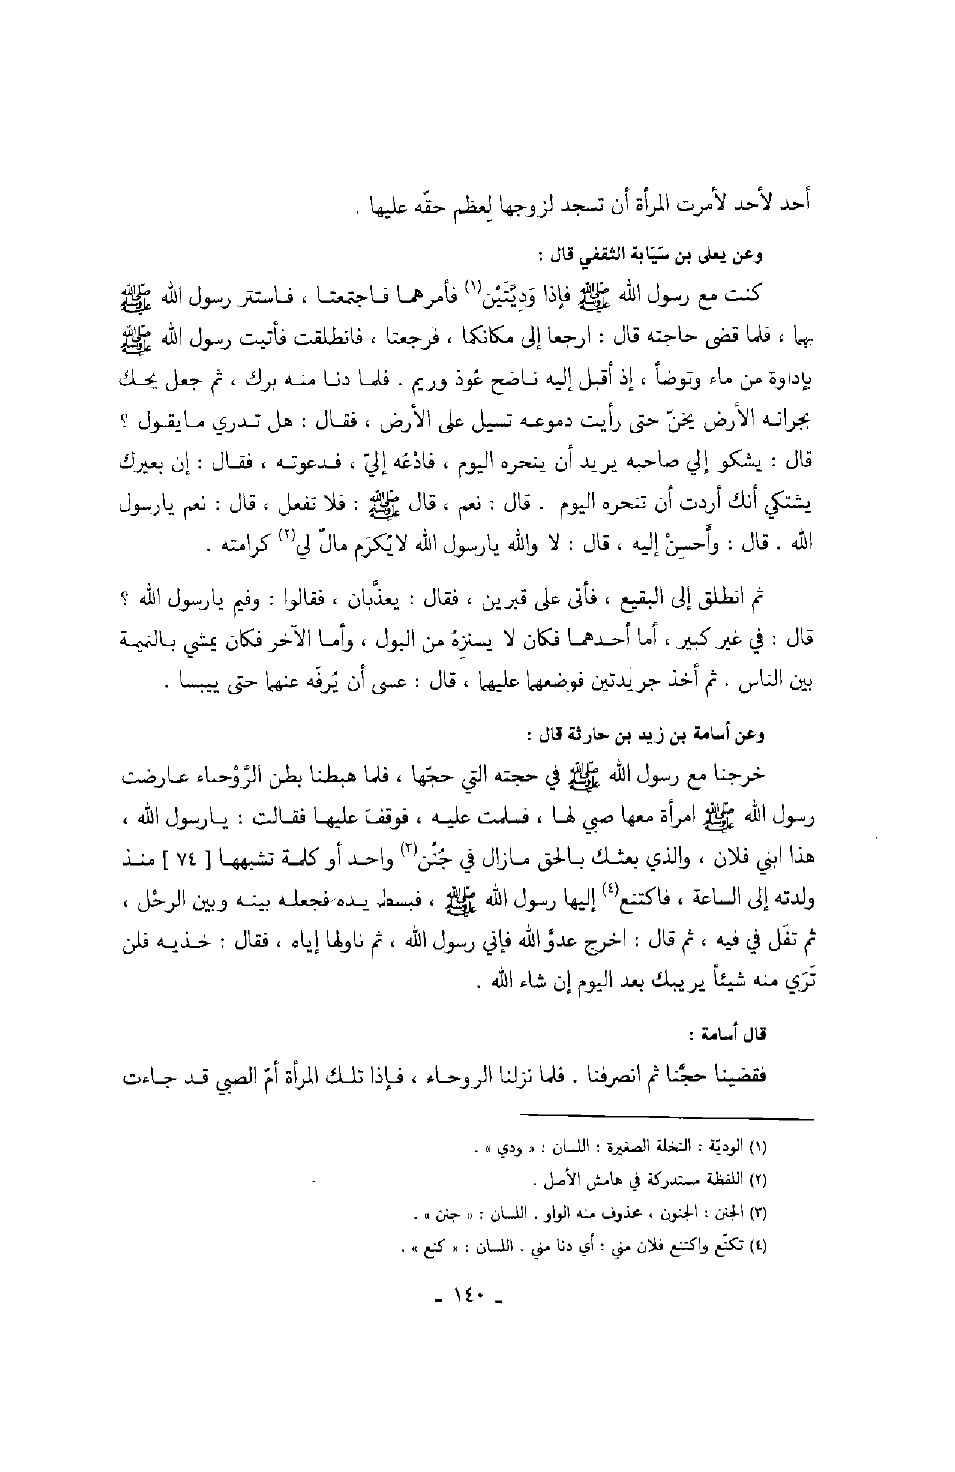 أحد لأحد لأمرت المرأة أن تسجد لزوجها لِعظم حقّه عليها .
وعن يعلى بن سَيَابة الثقفي قال :
كنت مع رسول الله ﷺ فإذا وَدِيَّتَيْن(١) فأمرهما فاجتمعتا ، فاستتر رسول الله ﷺ
بها ، فلما قضى حاجته قال : ارجعا إلى مكانكما ، فرجعتا ، فانطلقت فأتيت رسول الله ﷺ
بإداوة من ماء وتوضأ ، إذ أقبل إليه ناضح عُوذ وريم . فلما دنا منه برك ، ثم جعل يحك
بجرانه الأرض يخنّ حتى رأيت دموعه تسيل على الأرض ، فقال : هل تدري مايقول ؟
قال : يشكو إلي صاحبه يريد أن ينحره اليوم ، فادْعُه إليّ ، فدعوته ، فقال : إن بعيرك
يشتكي أنك أردت أن تنحره اليوم . قال : نعم ، قال ﷺ : فلا تفعل ، قال : نعم يارسول
الله . قال : وأَحسِنْ إليه ، قال : لا والله يارسول الله لايُكرَم مالٌ لي(٢) كرامته .
ثم انطلق إلى البقيع ، فأتى على قبرين ، فقال : يعذَّبان ، فقالوا : وفيم يارسول الله ؟
قال : في غير كبير ، أما أحدهما فكان لا يستنزِهُ من البول ، وأما الآخر فكان يمشي بالنميمة
بين الناس . ثم أخذ جريدتين فوضعها عليها ، قال : عسى أن يُرفَّه عنها حتى ييبسا .
وعن أسامة بن زيد بن حارثة قال :
خرجنا مع رسول الله ﷺ في حجته التي حجّها ، فلما هبطنا بطن الرَّوْحاء عارضت
رسول الله ﷺ امرأة معها صبي لها ، فسلمت عليه ، فوقفَ عليها فقالت : يارسول الله ،
هذا ابني فلان ، والذي بعثك بالحق مازال في جُنُن(٣) واحد أو كلمة تشبهها [ ٧٤ ] منذ
ولدته إلى الساعة ، فاكتنع(٤) إليها رسول الله ﷺ ، فبسط يده فجعله بينه وبين الرحْل ،
ثم تفَل في فيه ، ثم قال : اخرج عدوَّ الله فإني رسول الله ، ثم ناولها إياه ، فقال : خذيه فلن
تَرَي منه شيئاً يريبك بعد اليوم إن شاء الله .
قال أسامة :
فقضينا حجَّنا ثم انصرفنا . فلما نزلنا الروحاء ، فإذا تلك المرأة أمّ الصبي قد جاءت
(١) الوديّة : النخلة الصغيرة : اللسان : « ودي » .
(٢) اللفظة مستدركة في هامش الأصل .
(٣) الجنن : الجنون ، محذوف منه الواو . اللسان : « جنن » .
(٤) تكنّع واكتنع فلان مني : أي دنا مني . اللسان : « كنع » .
- ١٤٠ -